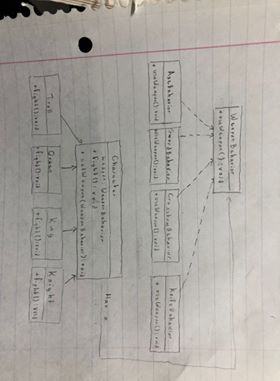 WeaponBehavior
+ useWeapon(): void
AxeBehavior
+ useWeapon(): void
SwordBehavior
+ useWeapon(): void
CrossbowBehavior
+ useWeapon(): void
KnifeBehavior
+ useWeapon(): void
Has a
Character
weapon: WeaponBehavior
+ fight(): void
+ setWeapon(WeaponBehavior): void
Troll
+ fight(): void
Queen
+ fight(): void
King
+ fight(): void
Knight
+ fight(): void